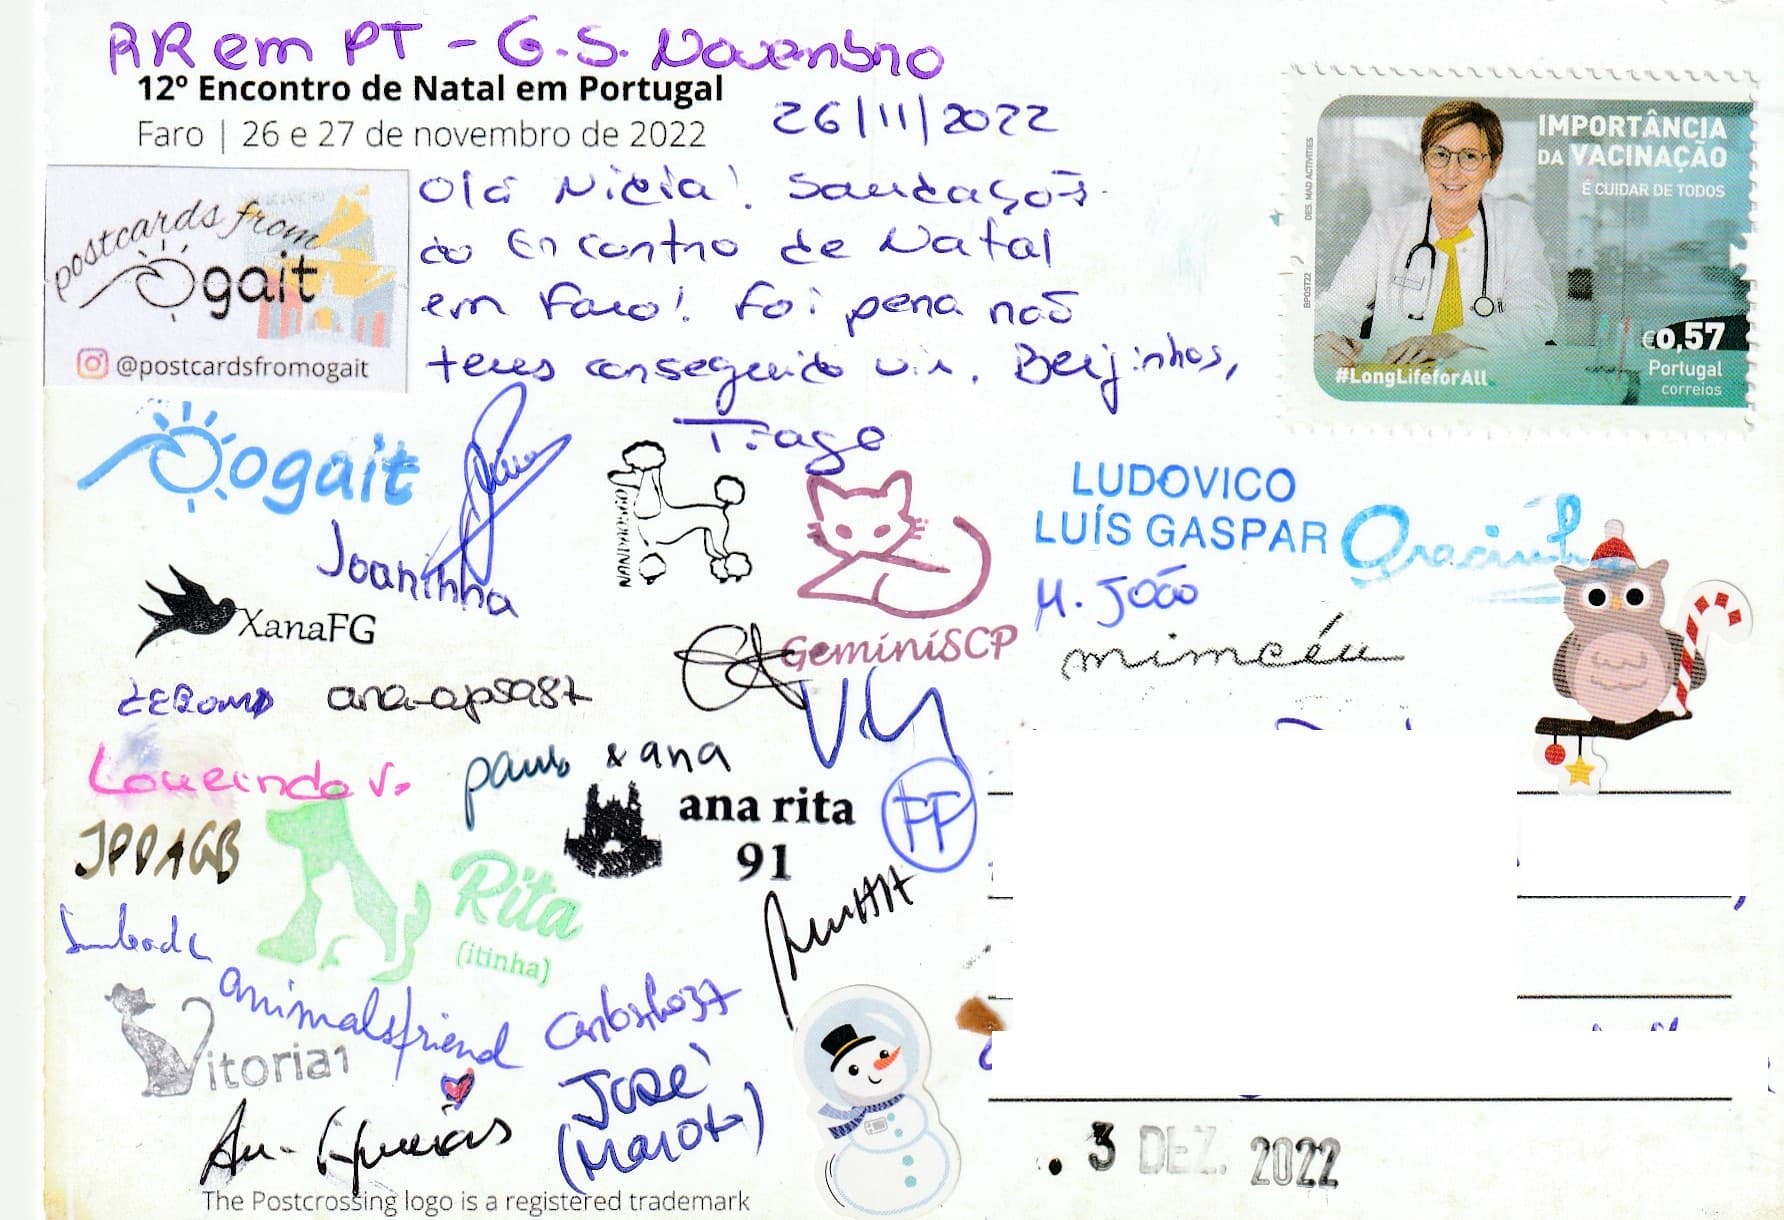 RR em PT - G.S. Novembro
12º Encontro de Natal em Portugal
Faro | 26 e 27 de novembro de 2022
26/11/2022
postcards from
ogait
@postcardsfromogait
Olá Nicia! Saudações
do Encontro de Natal
em Faro! Foi pena não
teres conseguido vir. Beijinhos,
Tiago
IMPORTÂNCIA
DA VACINAÇÃO
É CUIDAR DE TODOS
DES. MAD ACTIVITIES
BPOST22
€0,57
Portugal
correios
#LongLifeforAll
ogait
Joaninha
XanaFG
GeminiSCP
LUDOVICO
LUÍS GASPAR
Gracinha
M. João
mimcéu
ana-apsa87
Lourindo V.
paulo & ana
ana rita
91
FP
JPPAGB
Rita
(itinha)
animalsfriend
Vitoria1
José
(Marota)
3 DEZ. 2022
The Postcrossing logo is a registered trademark